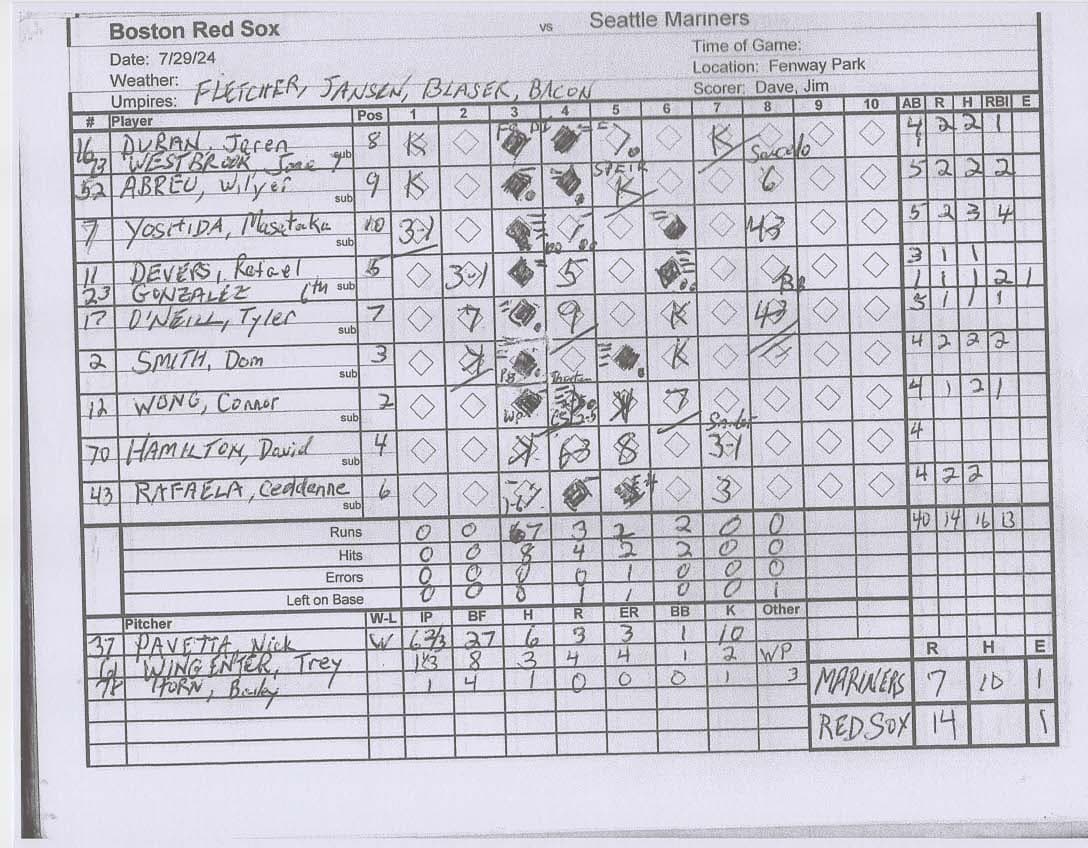 Boston Red Sox vs Seattle Mariners
Date: 7/29/24 Time of Game:
Weather: Location: Fenway Park
Umpires: FLETCHER, JANSEN, BLASER, BACON Scorer: Dave, Jim
# Player Pos 1 2 3 4 5 6 7 8 9 10 AB R H RBI E
16 DURAN, Jaren 8 K 7 K 4 2 2 1
WESTBROOK, sub Saucedo 1
52 ABREU, Wilyer sub 9 K K 6 5 2 2 2
7 YOSHIDA, Masataka sub 10 3-1 43 5 2 3 4
11 DEVERS, Rafael 5 3-1 5 3 1 1
23 GONZALEZ 6th sub 1 1 1 2 1
17 O'NEILL, Tyler sub 7 7 9 K 43 5 1 1 1
2 SMITH, Dom sub 3 K K 4 2 2 2
12 WONG, Connor sub 2 WP 7 4 1 2 1
70 HAMILTON, David sub 4 K 63 8 3-1 4
43 RAFAELA, Ceddanne sub 6 3 4 2 2
Runs 0 0 7 3 2 2 0 0 40 14 16 13
Hits 0 0 8 4 2 2 0 0
Errors 0 0 0 0 1 0 0 0
Left on Base 0 0 0 1 1 0 0 1
Pitcher W-L IP BF H R ER BB K Other
37 PAVETTA, Nick W 6 2/3 27 6 3 3 1 10 R H E
WINGENTER, Trey 1 1/3 8 3 4 4 1 2 WP MARINERS 7 10 1
HORN, Bailey 1 4 1 0 0 0 1 3
RED SOX 14 1